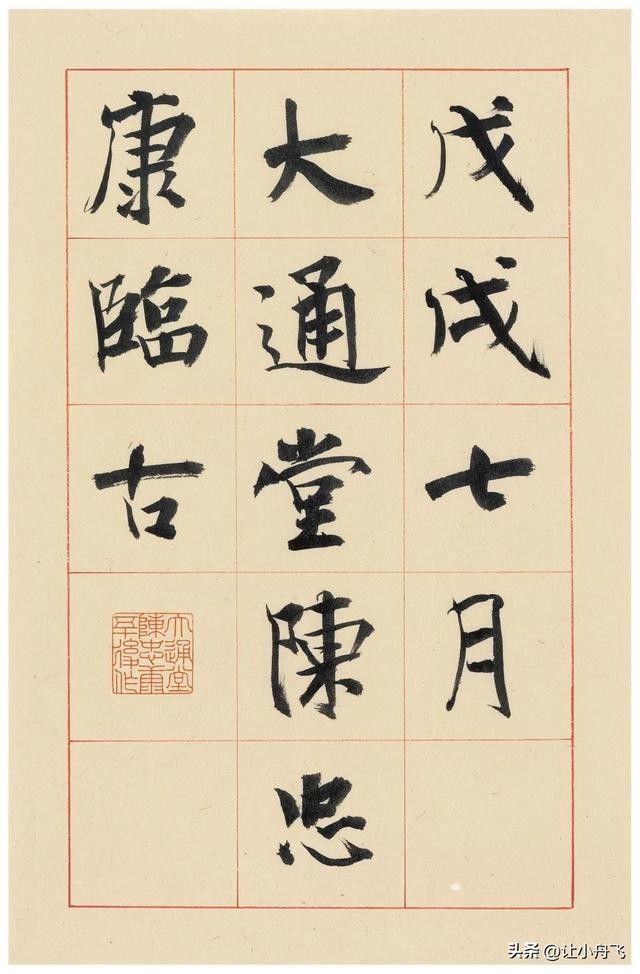 戊戌七月
大通堂陳忠
康臨古
大通堂
陳忠康
後作
头条 @让小舟飞